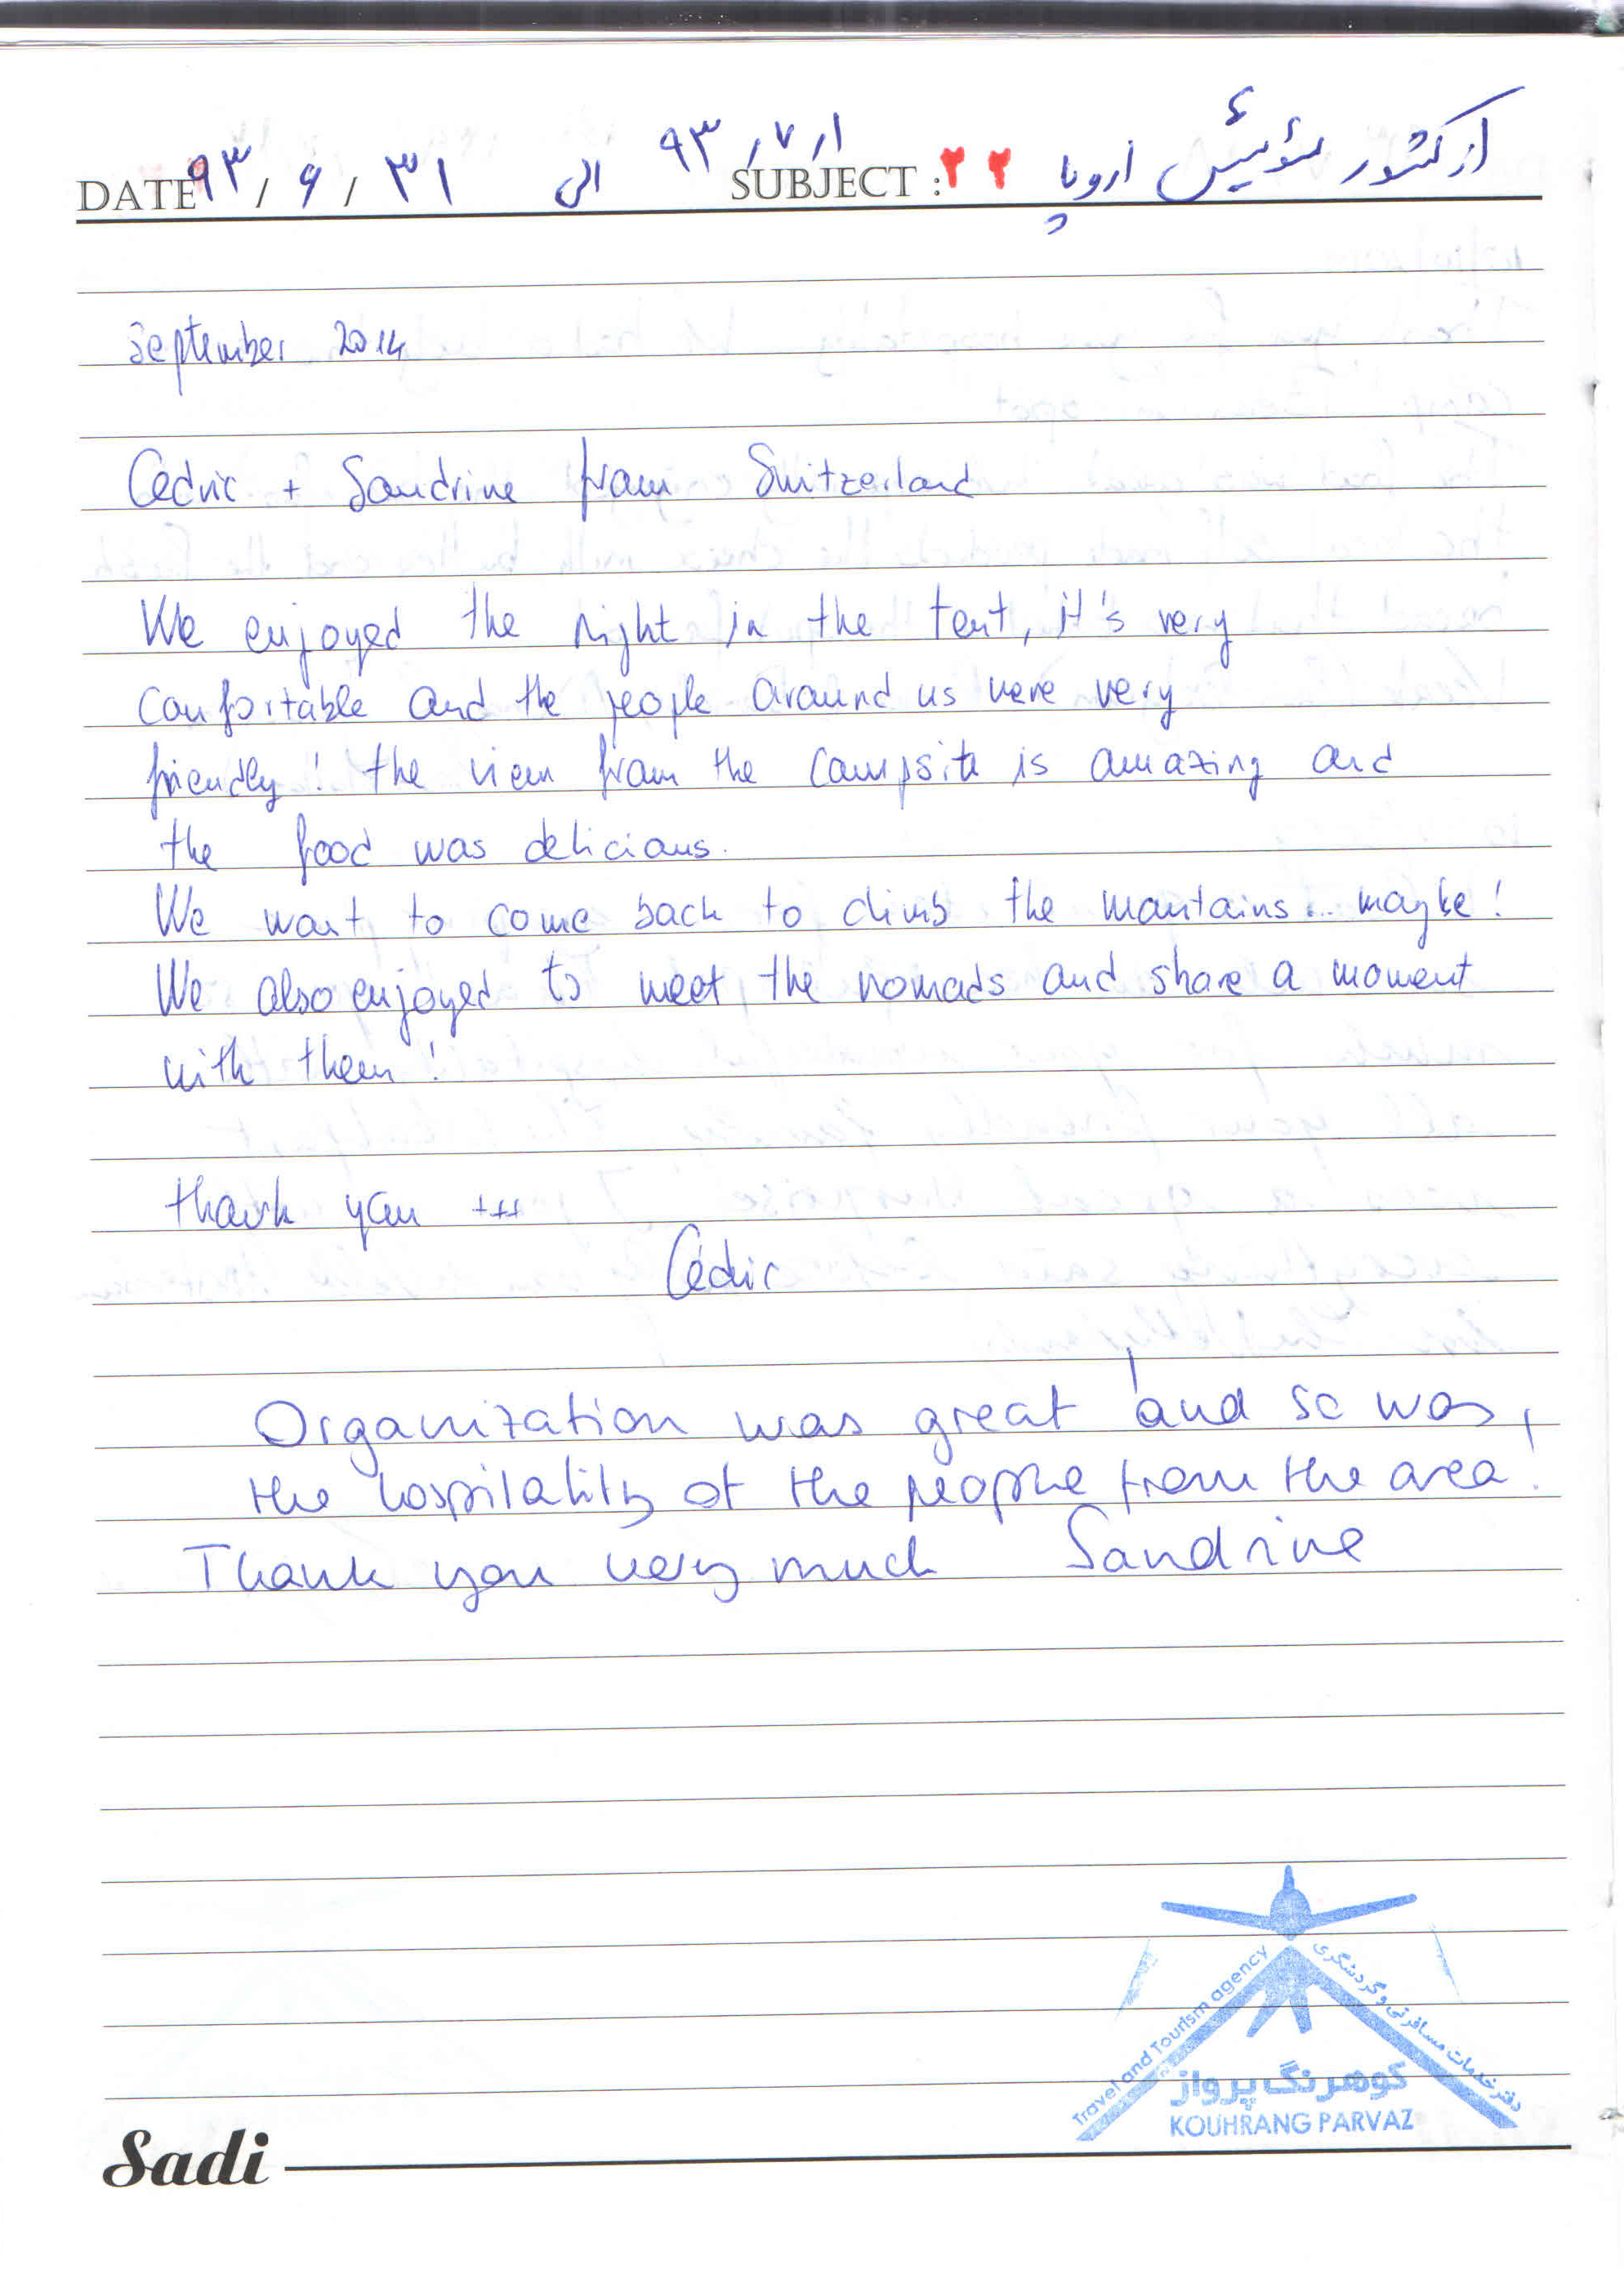 DATE ۹۳ / ۶ / ۳۱ الی ۹۳ / ۷ / ۱ SUBJECT : ۲۲ از کشور سوئیس اروپا
September 2014
Cédric + Sandrine from Switzerland
We enjoyed the night in the tent, it's very
comfortable and the people around us were very
friendly! the view from the campsite is amazing and
the food was delicious.
We want to come back to climb the mountains... maybe!
We also enjoyed to meet the nomads and share a moment
with them!
thank you +++
Cédric
Organization was great and so was,
the hospitality of the people from the area!
Thank you very much Sandrine
Travel and Tourism agency
دفتر خدمات مسافرتی و گردشگری
کوهرنگ پرواز
KOUHRANG PARVAZ
Sadi